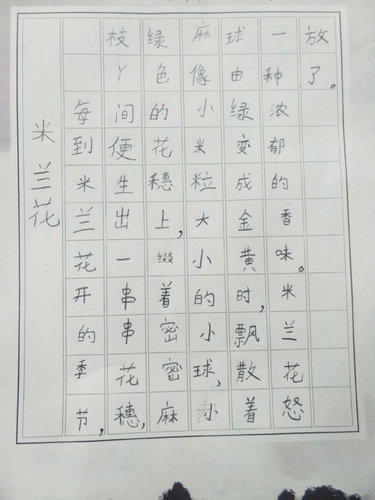 米兰花
每到米兰花开的季节，
枝丫间便生出一串串花穗，
绿色的花穗上，缀着密密麻
麻像小米粒大小的小球，小
球由绿变成金黄时，飘散着
一种浓郁的香味。米兰花怒
放了。